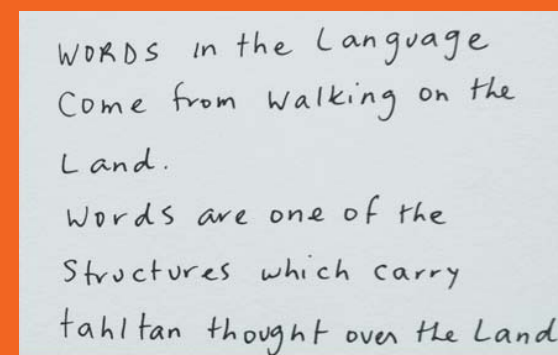 WORDS in the Language
Come from Walking on the
Land.
Words are one of the
Structures which carry
tahltan thought over the Land